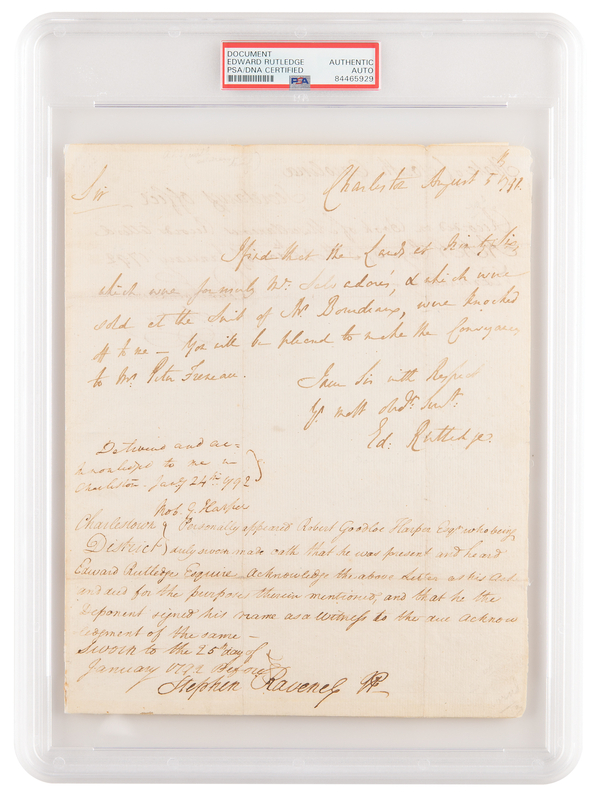 DOCUMENT
EDWARD RUTLEDGE
PSA/DNA CERTIFIED
AUTHENTIC
AUTO
84465929
PSA
Sir
Charleston August 5th
I find that the Lands at Ninety Six
which were formerly Mr. & which were
sold at the Suit of Mr. were knocked
off to me — You will be pleased to make the Conveyance
to Mr. Peter Freneau.
I am Sir with Respect
Yr. most Obdt. Servt.
Ed: Rutledge
Delivered and ac=
knowledged to me in
Charleston Jany 24th 1792
Rob G. Harper
Charlestown } Personally appeared Robert Goodloe Harper Esqr. who being
District } duly sworn made oath that he was present and heard
Edward Rutledge Esquire Acknowledge the above Letter as his Act
and deed for the purposes therein mentioned, and that he the
Deponent signed his name as a Witness to the due Acknow
ledgment of the same —
Sworn to the 25th day of
January 1792 Before
Stephen Ravenel